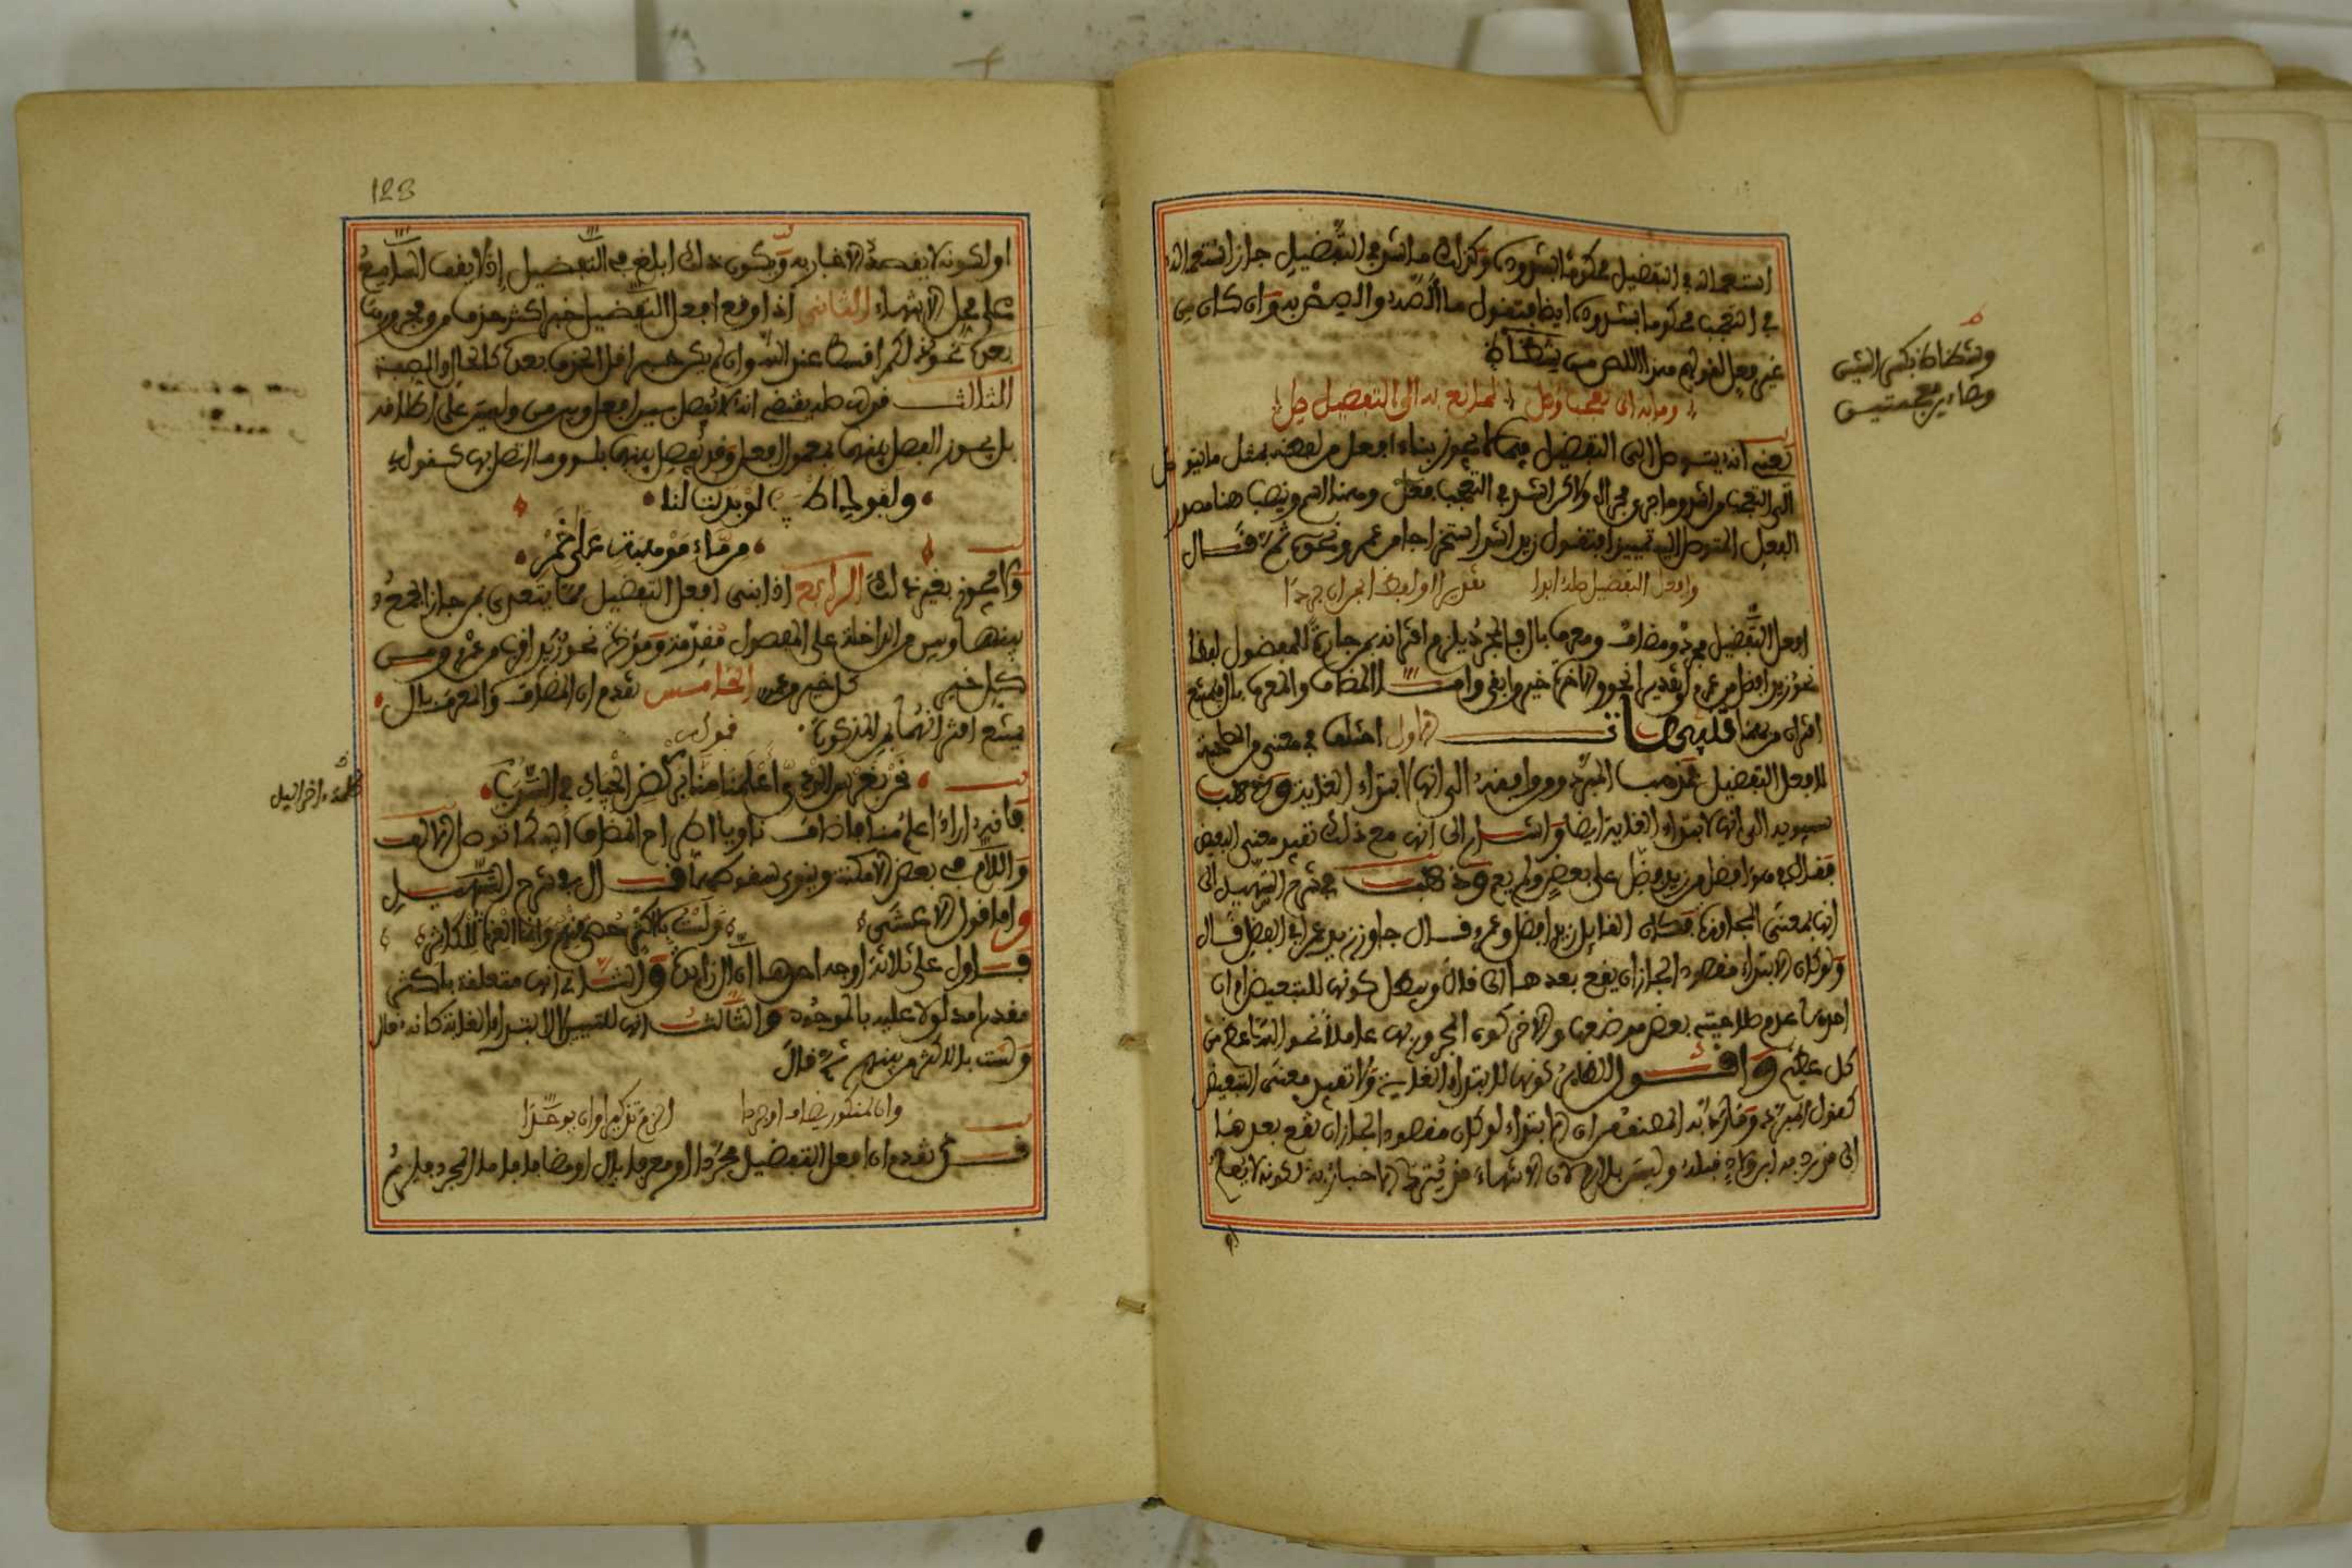 استعماله في التفضيل محكوما بشذوذه وكذلك ما شذ في التفضيل جاز استعماله
في التعجب محكوما بشذوذه ايضا فتقول ما ألصه وألصص به وان كان من
غير فعل لقولهم هذا الص من شظاظ
وما به الى تعجب وصل لمانع به الى التفضيل صل
يعني انه يتوصل الى التفضيل فيما لا يجوز بناء افعل من لفظه بمثل ما يتوصل
الى التعجب من اشد وما جرى مجراه ولاكن اشد في التعجب فعل وهنا اسم وينصب هنا مصدر
الفعل المتوصل اليه تمييزا فتقول زيد اشد استخراجا من عمرو ونحوه ثم قال
وافعل التفضيل صله ابدا تقديرا او لفظا بمن ان جردا
افعل التفضيل مجرد ومضاف ومعرف بال فالمجرد يلزم اقترانه بمن جارة للمفضول لفظا
نحو زيد افضل من عمرو او تقديرا نحو والاخرة خير وابقى وامـا المضاف والمعرف بال فيمتنع
اقترانهما بمن تنبيهات الاول اختلف في معنى من المصاحبة
لافعل التفضيل فمذهب المبرد ومن وافقه الى انها لابتداء الغاية وذهب
سيبويه الى انها لابتداء الغاية ايضا واشار الى انها مع ذلك تفيد معنى التبعيض
فقال في هو افضل من زيد فضله على بعض ولم يعم وذهب في شرح التسهيل الى
انها بمعنى المجاوزة فكان القايل زيد افضل من عمرو قال جاوز زيد عمرا في الفضل قال
ولو كان الابتداء مقصودا لجاز ان يقع بعدها الى قال ويبطل كونها للتبعيض امران
احدهما عدم صلاحية بعض موضعها والاخر كون المجرور بها عاما نحو الله اعظم من
كل عظيم واقـول الظاهر كونها للابتداء الغاية ولا تفيد معنى التبعيض
كقول المبرد وما رد به المصنف من ان الابتداء لو كان مقصودا لجاز ان يقع بعدها
الى قد رد به ابن ولاد قبله وليس بلازم لان الانتهاء قد يترك الاخبار به لكونه لا يعلم
وشظاظ بكسر الشين
وظاءين معجمتين
128
او لكونه لا يقصد الاخبار به ويكون ذلك ابلغ في التفضيل اذ لا يقف السامع
على محل الانتهاء الثاني اذا وقع افعل التفضيل خبرا كثر حذف من ومجرورها
بعده نحو ذلكم اقسط عند الله وان لم يكن خبرا قل الحذف بعده كالحال والصفة
الثالث قوله صله يقتضي انه لا يفصل بين افعل وبين من وليس على اطلاقه
بل يجوز الفصل بينهما بمعمول افعل وقد يفصل بينهما بلو وما اتصل بها كقوله
ولفوك اطيب لو بذلت لنا
من ماء موهبة على خمر
ولا يجوز بغير ذلك الرابع اذا بني افعل التفضيل مما يتعدى بمن جاز الجمع
بينها وبين من الداخلة على المفضول مقدمة ومؤخرة نحو زيد اقرب من عمرو من
كل خير من كل خير من عمرو الخامس تقدم ان المضاف والمعرف بال
يمتنع اقترانهما بمن المذكورة فقوله
نحن بغرس الودي اعلمنا منا بركض الجياد في السدف
فافيد اراد اعلم منا فاضاف ناويا اطراح المضاف اليه كما تدخل الالف
واللام في بعض الامكنة وينوى سقوطهما قـال في شرح التسهيل
واما قول الاعشى ولست بالاكثر منهم حصى وانما العزة للكاثر
فـاول على ثلاثة اوجه احدها ان ال زايدة والثـاني انها متعلقة باكثر
مقدرا مدلولا عليه بالموجود والثالث انها للتبيين لا لابتداء الغاية كانه قال
ولست بالاكثر من بينهم ثم قال
وان لمنكور يضف او جردا الزم تذكيرا وان يوحدا
قـد تقدم ان افعل التفضيل مجرد او معرف بال او مضاف فاما المجرد فيلزم